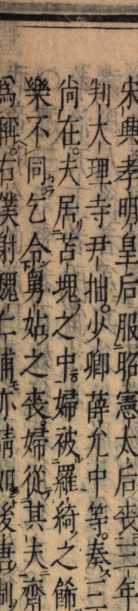 宋典孝明皇后服昭憲太后喪三年
判大理寺尹拙少卿薛允中等奏三
尚在夫居苫塊之中婦被羅綺之餙
樂不同乞令舅姑之喪婦從其夫齊
為稱右僕射魏仁浦亦請如後唐制